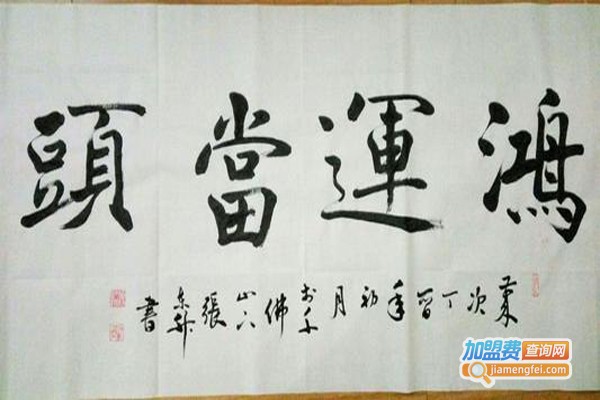 鴻運當頭
歲次丁酉年初月於千佛山下張書
加盟费查询网
jiamengfei.com